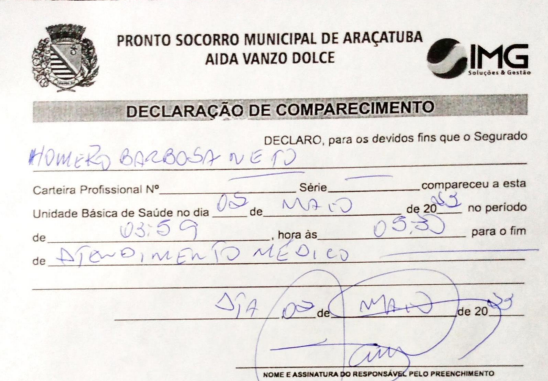 PRONTO SOCORRO MUNICIPAL DE ARAÇATUBA
AIDA VANZO DOLCE
IMG
Soluções & Gestão
DECLARAÇÃO DE COMPARECIMENTO
DECLARO, para os devidos fins que o Segurado
HOMERO BARBOSA NETO
Carteira Profissional Nº Série compareceu a esta
Unidade Básica de Saúde no dia de MAIO de 20 no período
de 03:59, hora às 05:30 para o fim
de ATENDIMENTO MÉDICO
de MAIO de 20
NOME E ASSINATURA DO RESPONSÁVEL PELO PREENCHIMENTO